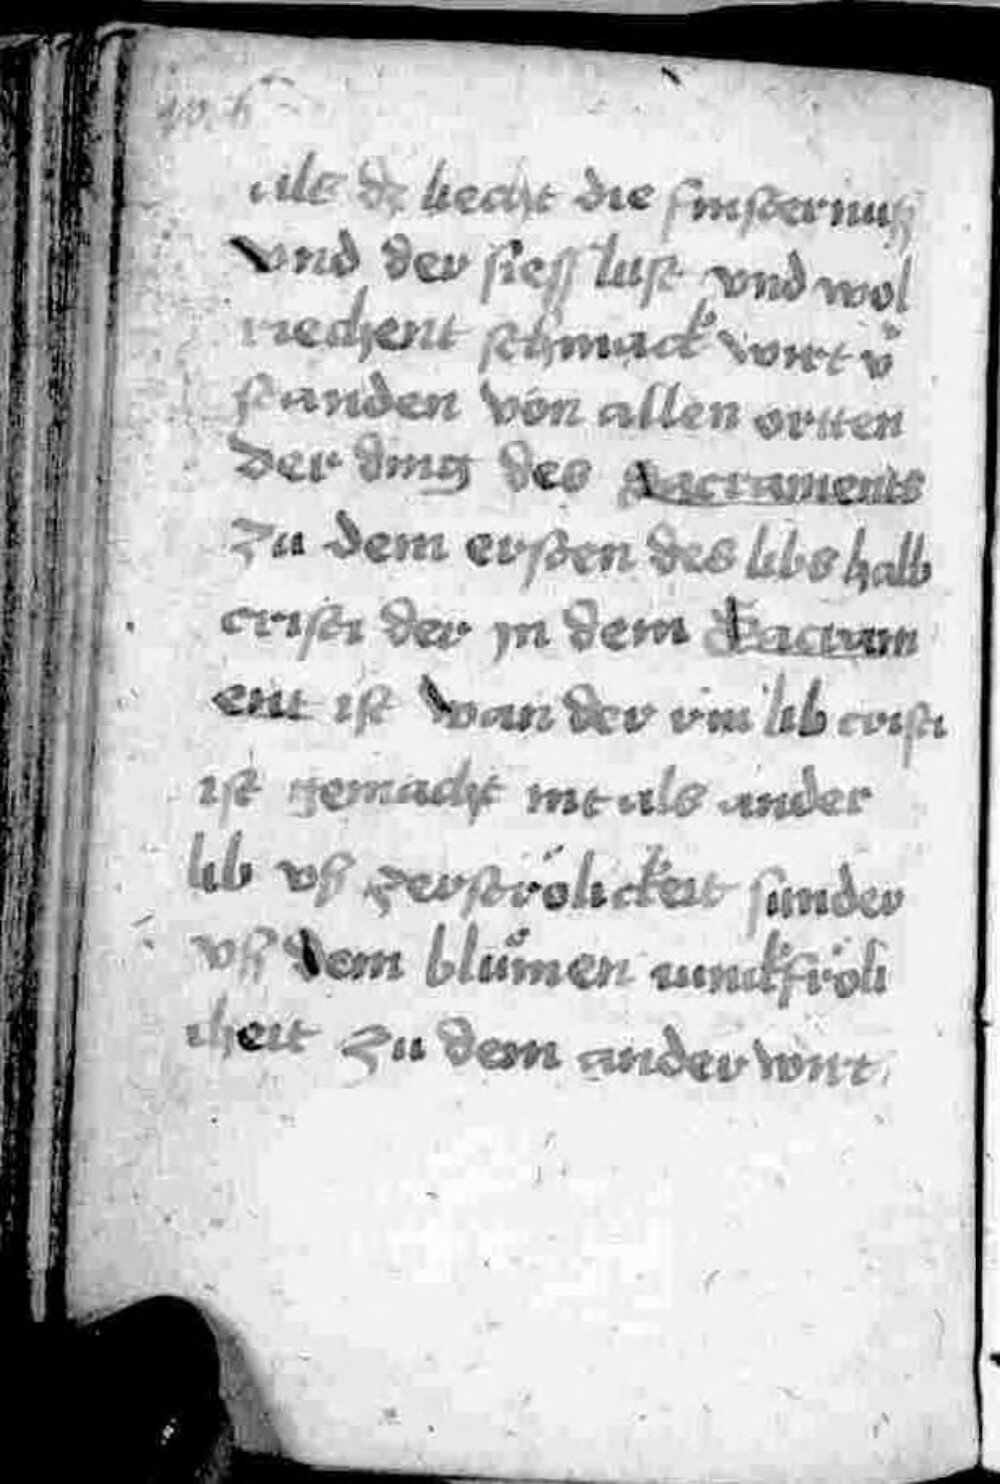 als dz liecht die finsternuß
vnd der siess lust vnd wol
riechent schmack wirt v̈
standen von allen ortten
Der ding des Sacraments
Zu dem ersten des libs halb
cristi der jn dem Sacram
ent ist wan der rin lib cristi
ist gemacht nit als ander
lib vß zerströlickeit sunder
vß dem blůmen
icheit zu dem ander wirt